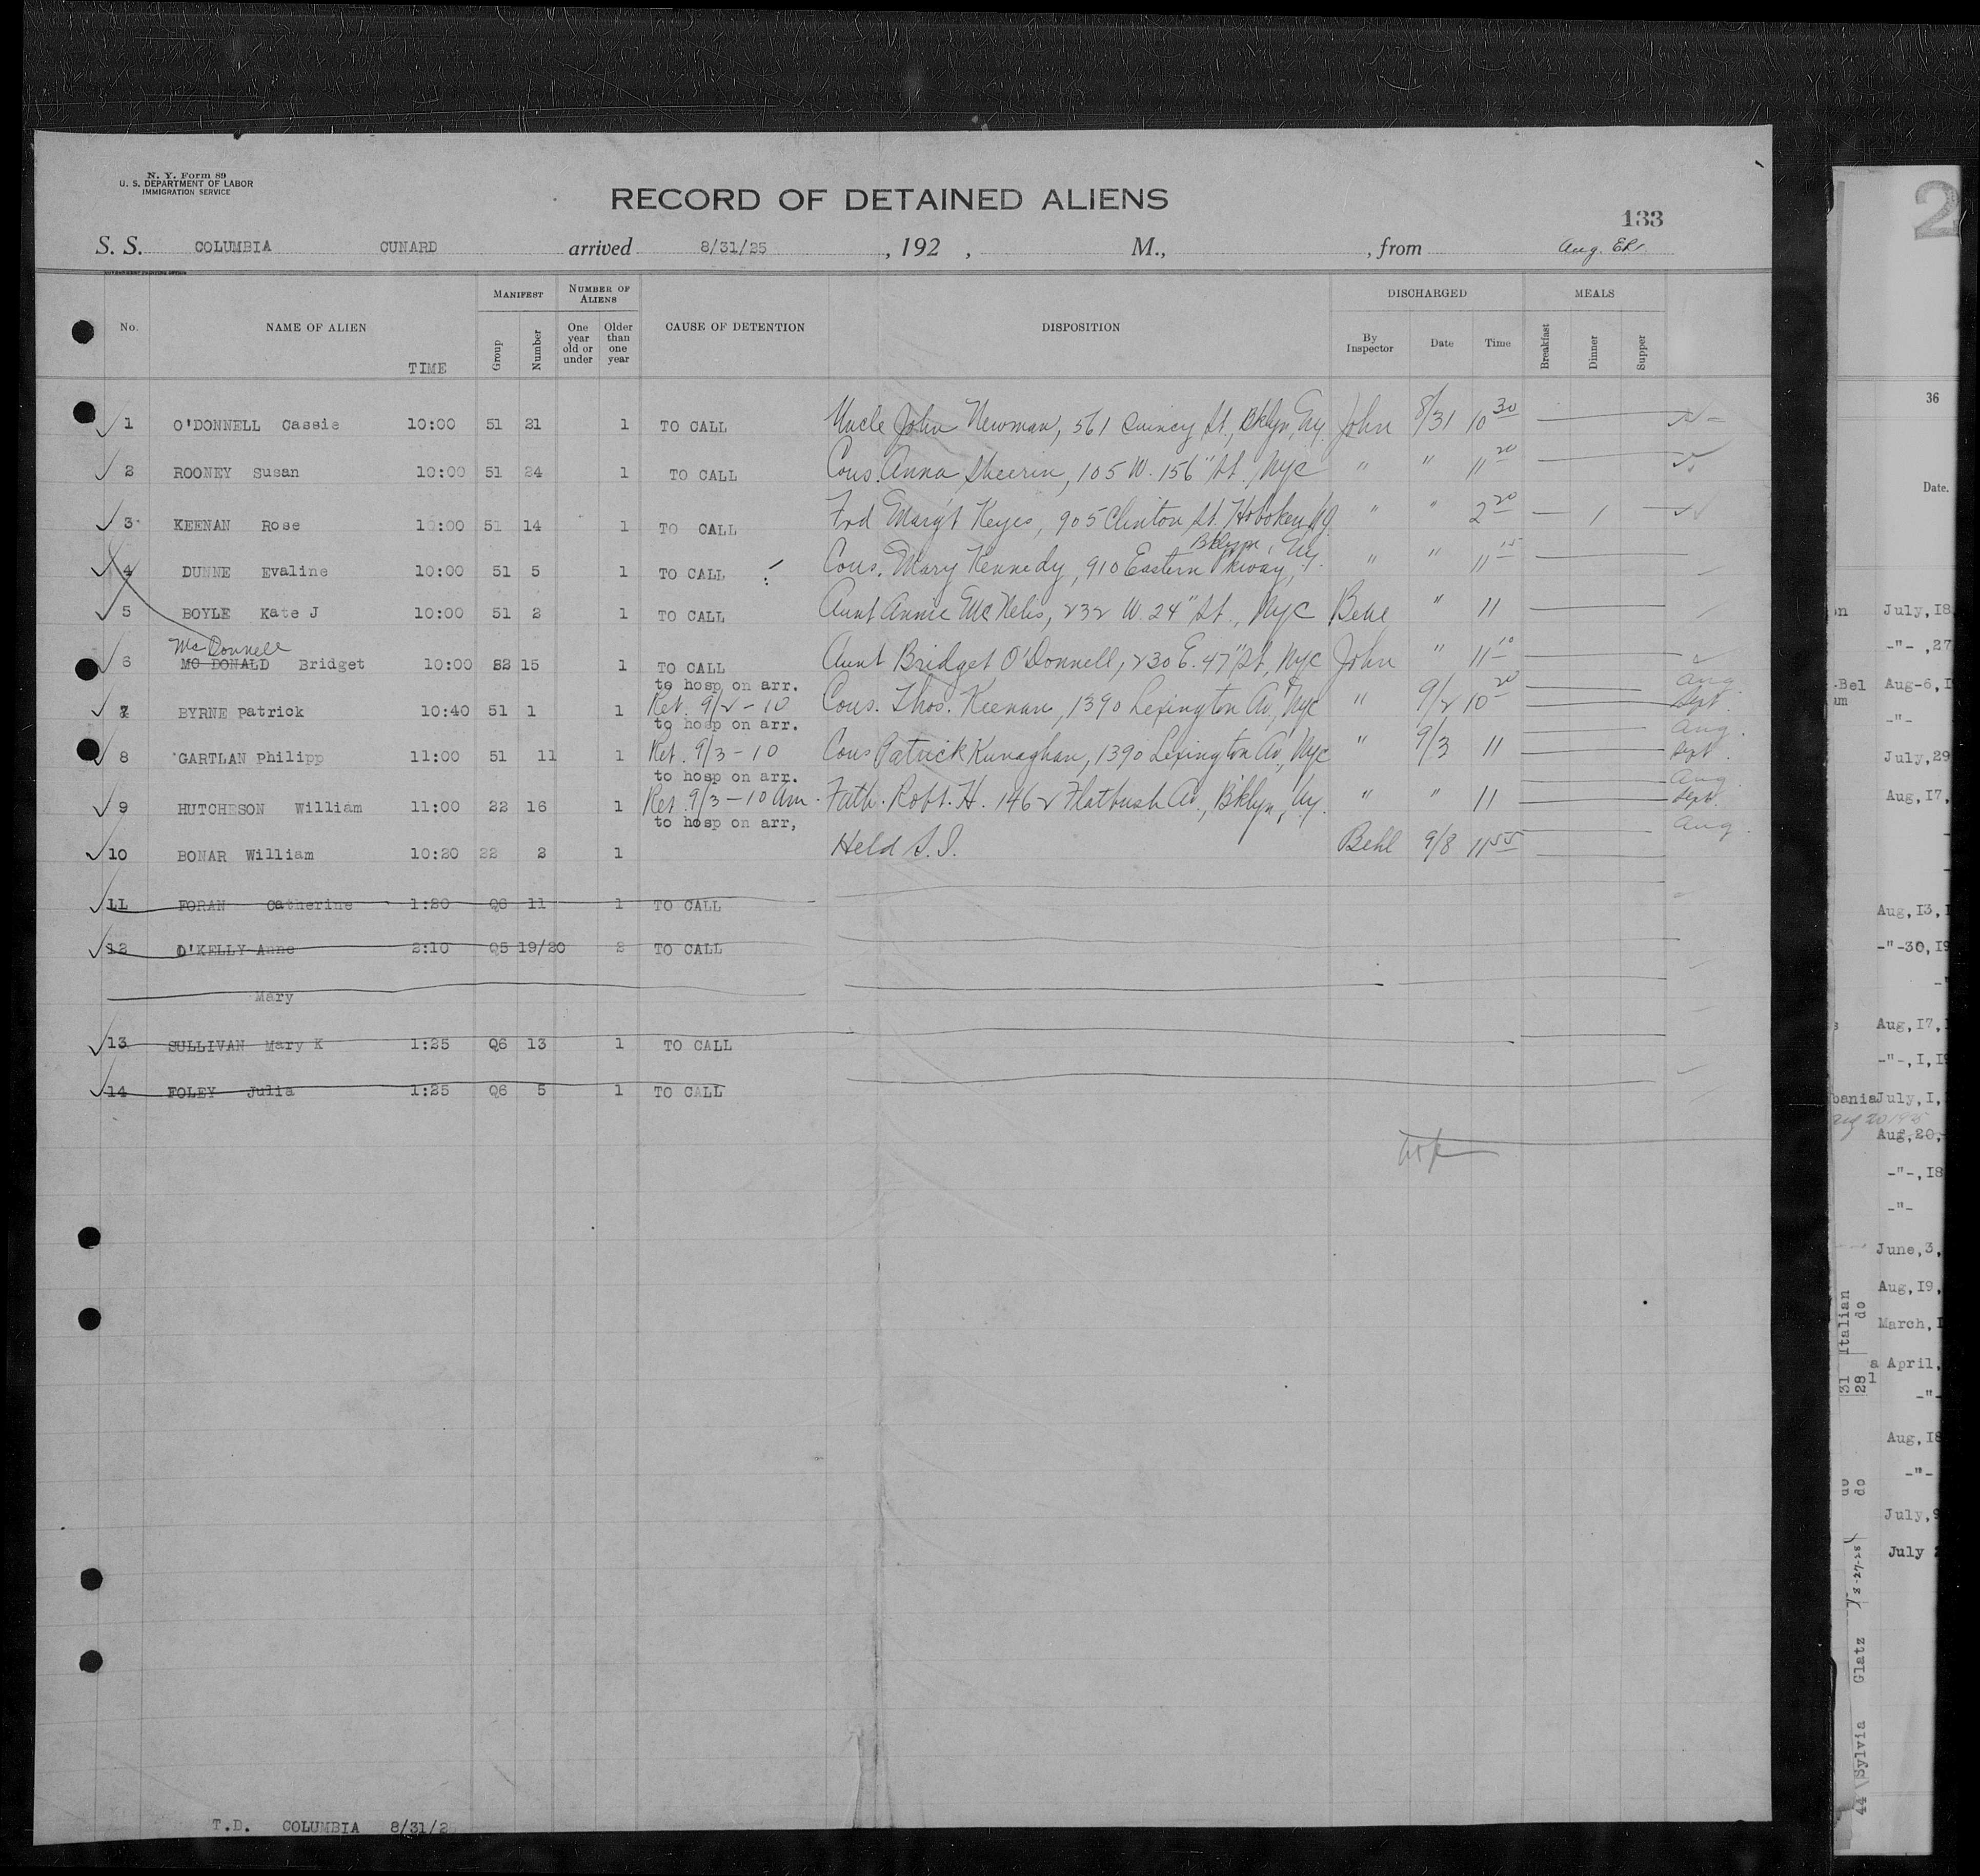 N. Y. Form 89
U. S. DEPARTMENT OF LABOR
IMMIGRATION SERVICE
RECORD OF DETAINED ALIENS
133
S. S. COLUMBIA CUNARD arrived 8/31/25 , 192 , M., , from Aug.
GOVERNMENT PRINTING OFFICE
No. NAME OF ALIEN TIME MANIFEST Group Number NUMBER OF ALIENS One year old or under Older than one year CAUSE OF DETENTION DISPOSITION DISCHARGED By Inspector Date Time MEALS Breakfast Dinner Supper
1 O'DONNELL Cassie 10:00 51 21 1 TO CALL Uncle John Newman, 561 Quincy St., Bklyn, Ny. John 8/31 10 30
2 ROONEY Susan 10:00 51 24 1 TO CALL Cous. Anna Sheerin, 105 W. 156" St., Nyc " " 11 20
3 KEENAN Rose 10:00 51 14 1 TO CALL Frd Marg't Keyes, 905 Clinton St. Hoboken, NJ " " 2 20 1
Bklyn, Ny.
4 DUNNE Evaline 10:00 51 5 1 TO CALL Cous. Mary Kennedy, 910 Eastern Pkway, " " 11 15
5 BOYLE Kate J 10:00 51 2 1 TO CALL Aunt Annie McNelis, 232 W. 24" St., Nyc Behl " 11
McDonnell
6 MC DONALD Bridget 10:00 52 15 1 TO CALL Aunt Bridget O'Donnell, 230 E. 47" St, Nyc John " 11 10
to hosp on arr. Aug
7 BYRNE Patrick 10:40 51 1 1 Ret. 9/2 - 10 Cous. Thos. Keenan, 1390 Lexington Av, Nyc " 9/2 10 20 Sept.
to hosp on arr. Aug.
8 GARTLAN Philipp 11:00 51 11 1 Ret. 9/3 - 10 Cous Patrick Kunaghan, 1390 Lexington Av, Nyc " 9/3 11 Sept.
to hosp on arr. Aug
9 HUTCHESON William 11:00 22 16 1 Ret. 9/3 - 10 Am. Fath. Robt. H. 1462 Flatbush Av., B'klyn, Ny. " " 11 Sept.
to hosp on arr, Aug.
10 BONAR William 10:20 22 2 1 Held S.I. Behl 9/8 11 55
11 FORAN Catherine 1:20 Q6 11 1 TO CALL
12 O'KELLY Anne 2:10 Q5 19/20 2 TO CALL
Mary
13 SULLIVAN Mary K 1:25 Q6 13 1 TO CALL
14 FOLEY Julia 1:25 Q6 5 1 TO CALL
T.D. COLUMBIA 8/31/2
2
36
Date.
July, 18
-"- , 27
-Bel Aug-6, 1
-"-
July, 29
Aug, 17,
Aug, 13, 1
-"-30, 19
Aug, 17, 1
-"-, 1, 19
bania July, I,
Aug, 20,
-"-, 18
-"-
June, 3,
Aug, 19,
March, 1
a April,
-"-
Aug, 18
-"-
July, 9
July 2
31 Italian
28 do
do
do
8-27-25
44 Sylvia Glatz